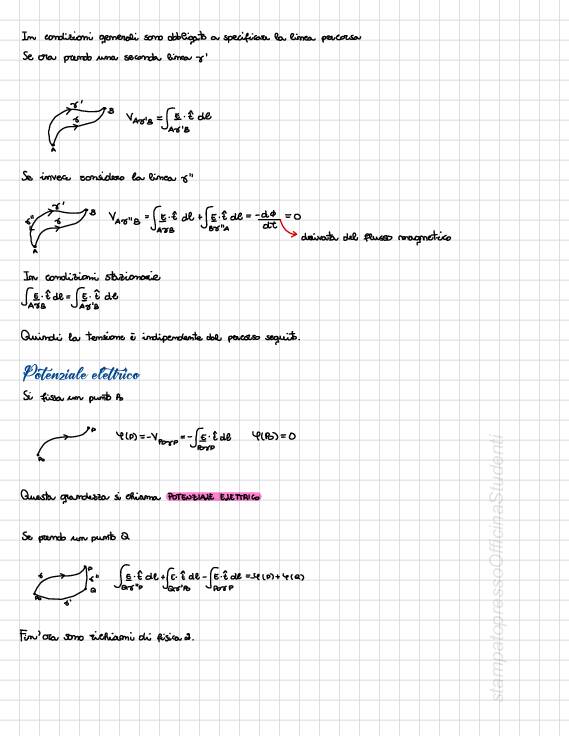 In condizioni generali sono obbligato a specificare la linea percorsa
Se ora prendo una seconda linea γ'
γ'
γ
B
A
V_Aγ'B = ∫_Aγ'B E · t̂ dl
Se invece considero la linea γ"
γ'
γ"
γ
B
A
V_Aγ"B = ∫_AγB E · t̂ dl + ∫_Bγ"A E · t̂ dl = -dϕ/dt = 0
derivata del flusso magnetico
In condizioni stazionarie
∫_AγB E · t̂ dl = ∫_Aγ'B E · t̂ dl
Quindi la tensione è indipendente dal percorso seguito.
Potenziale elettrico
Si fissa un punto P₀
P
P₀
φ(P) = -V_P₀γP = -∫_P₀γP E · t̂ dl φ(P₀) = 0
Questa grandezza si chiama POTENZIALE ELETTRICO
Se prendo un punto Q
γ
P
γ"
Q
P₀
γ'
∫_Qγ"P E · t̂ dl + ∫_Qγ'P₀ E · t̂ dl - ∫_P₀γP E · t̂ dl = -φ(P) + φ(Q)
Fin'ora sono richiami di fisica 2.
stampatopressoOfficinaStudenti